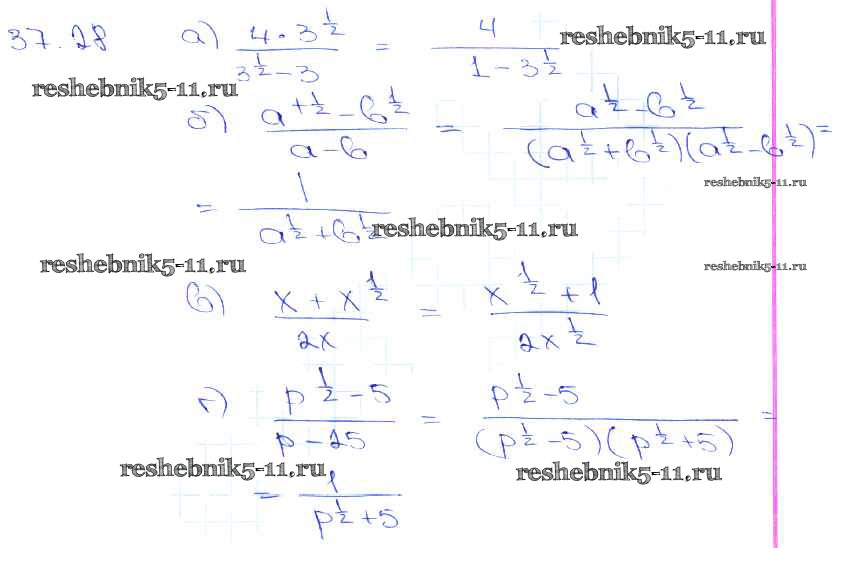 37.28 а) (4 · 3^(1/2)) / (3^(1/2) − 3) = 4 / (1 − 3^(1/2)) reshebnik5-11.ru
reshebnik5-11.ru
б) (a^(+1/2) − b^(1/2)) / (a − b) = (a^(1/2) − b^(1/2)) / ((a^(1/2) + b^(1/2))(a^(1/2) − b^(1/2))) =
reshebnik5-11.ru
= 1 / (a^(1/2) + b^(1/2)) reshebnik5-11.ru
reshebnik5-11.ru reshebnik5-11.ru
в) (x + x^(1/2)) / (2x) = (x^(1/2) + 1) / (2x^(1/2))
г) (p^(1/2) − 5) / (p − 25) = (p^(1/2) − 5) / ((p^(1/2) − 5)(p^(1/2) + 5)) =
reshebnik5-11.ru reshebnik5-11.ru
= 1 / (p^(1/2) + 5)